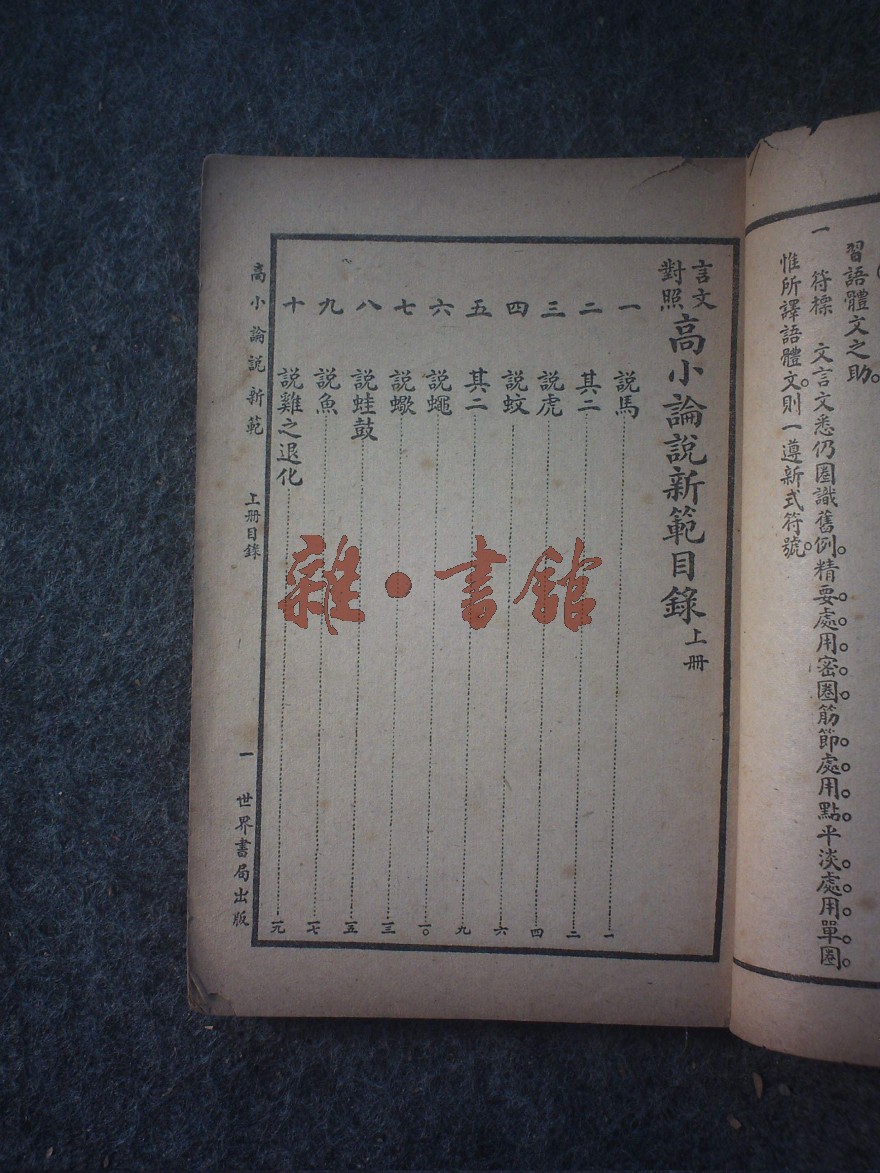 習語體文之助。
一　符標　文言文悉仍圈識舊例。精要處用密圈。筋節處用點。平淡處用單圈。
惟所譯語體文。則一遵新式符號。
言文對照高小論說新範目錄 上册
一 說馬 一
二 其二 二
三 說虎 四
四 說蚊 六
五 其二 九
六 說蠅 一〇
七 說蠍 一三
八 說蛙鼓 一五
九 說魚 一七
十 說雞之退化 一九
高小論說新範 上册目錄 一 世界書局出版
雜·書館